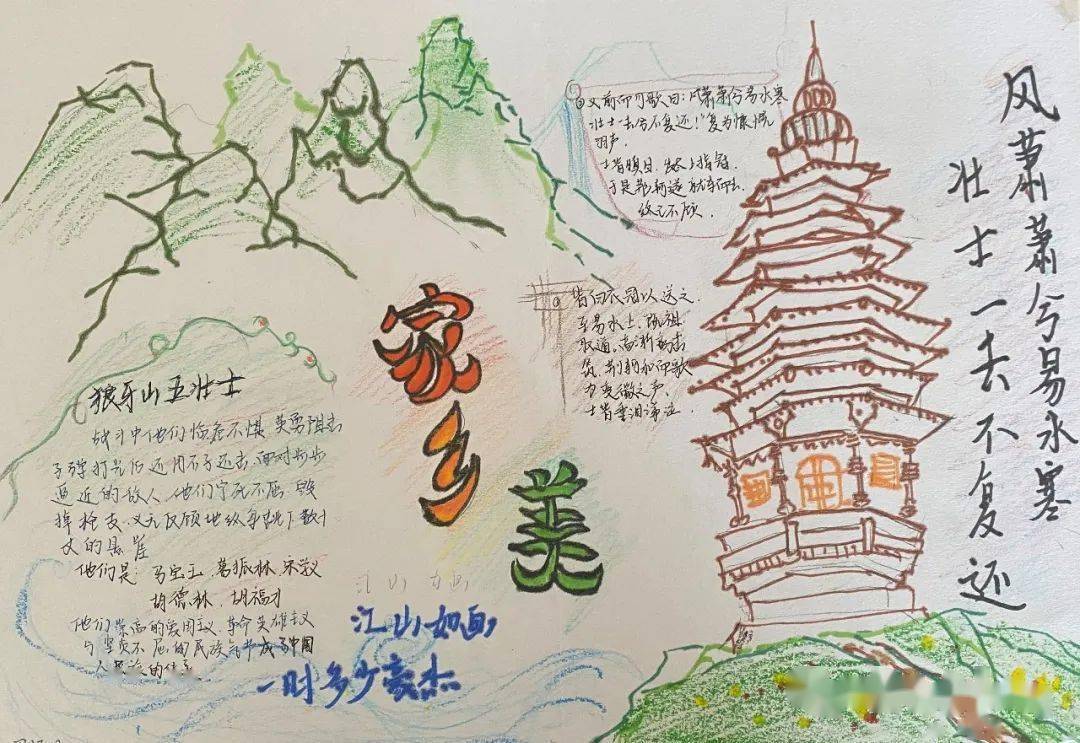 风萧萧兮易水寒
壮士一去不复还
又前而为歌曰:风萧萧兮易水寒
壮士一去兮不复还!复为慷慨
羽声
士皆瞋目,发尽上指冠.
于是荆轲遂就车而去.
终已不顾.
皆白衣冠以送之.
至易水上,既祖
取道.高渐离击
筑,荆轲和而歌
为变徵之声.
士皆垂泪涕泣.
家乡美
狼牙山五壮士
战斗中他们临危不惧 英勇阻击
子弹打光后还用石子还击.面对步步
逼近的敌人,他们宁死不屈 毁
掉枪支.义无反顾地纵身跳下数十
丈的悬崖
他们是:马宝玉.葛振林.宋学义
胡德林,胡福才
他们崇高的爱国主义.革命英雄主义
与坚贞不屈的民族气节成了中国
人民
江山如画
江山如画,
一时多少豪杰